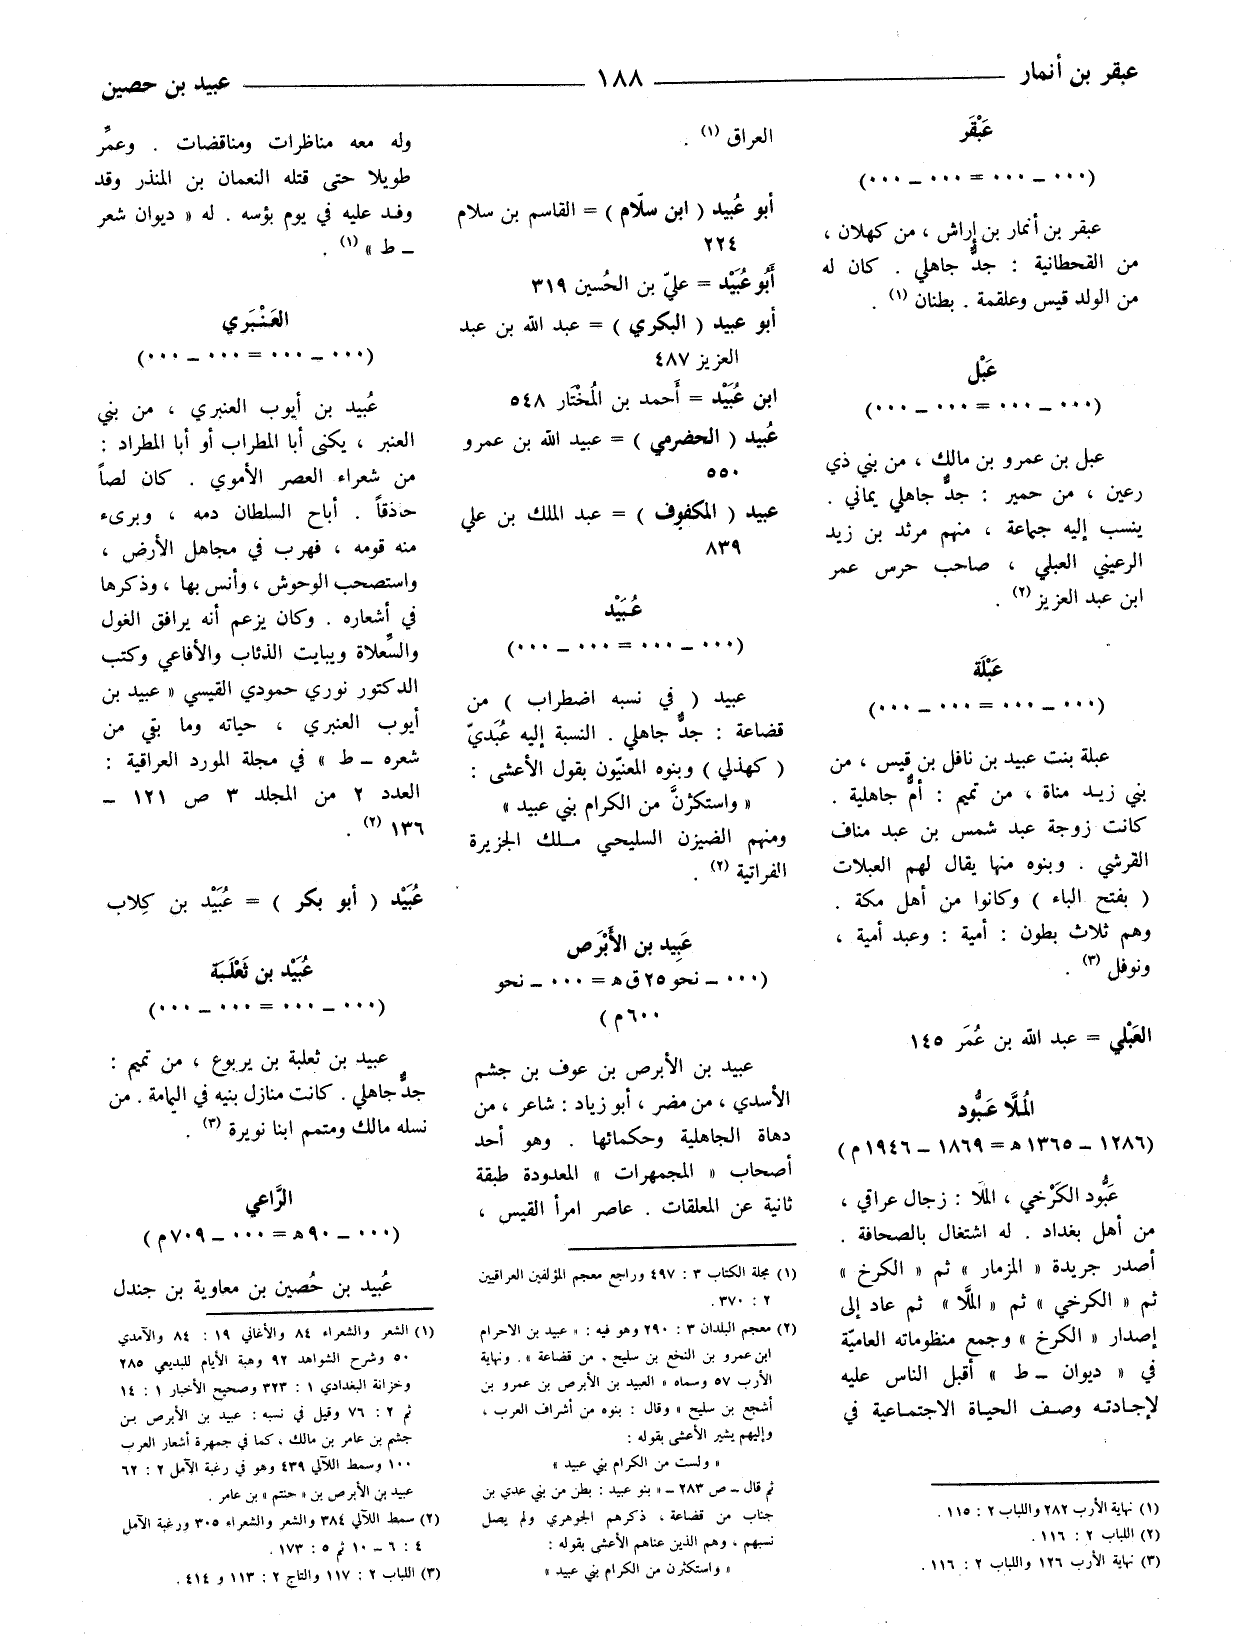 عبقر بن أنمار ١٨٨ عبيد بن حصين
عَبْقَر
(٠٠٠ ــ ٠٠٠ = ٠٠٠ ــ ٠٠٠)
عبقر بن أنمار بن إراش ، من كهلان ،
من القحطانية : جدٌّ جاهلي . كان له
من الولد قيس وعلقمة . بطنان (١) .
عَبْل
(٠٠٠ ــ ٠٠٠ = ٠٠٠ ــ ٠٠٠)
عبل بن عمرو بن مالك ، من بني ذي
رعين ، من حمير : جدٌّ جاهلي يماني .
ينسب إليه جماعة ، منهم مرثد بن زيد
الرعيني العبلي ، صاحب حرس عمر
ابن عبد العزيز (٢) .
عَبْلَة
(٠٠٠ ــ ٠٠٠ = ٠٠٠ ــ ٠٠٠)
عبلة بنت عبيد بن نافل بن قيس ، من
بني زيد مناة ، من تميم : أمٌّ جاهلية .
كانت زوجة عبد شمس بن عبد مناف
القرشي . وبنوه منها يقال لهم العبلات
( بفتح الباء ) وكانوا من أهل مكة .
وهم ثلاث بطون : أمية : وعبد أمية ،
ونوفل (٣) .
العَبْلي = عبد الله بن عُمَر ١٤٥
المُلَّا عَبُّود
(١٢٨٦ ــ ١٣٦٥ هـ = ١٨٦٩ ــ ١٩٤٦ م)
عَبُّود الكَرْخي ، الملَا : زجال عراقي ،
من أهل بغداد . له اشتغال بالصحافة .
أصدر جريدة « المزمار » ثم « الكرخ »
ثم « الكرخي » ثم « الملَّا » ثم عاد إلى
إصدار « الكرخ » وجمع منظوماته العاميّة
في « ديوان ــ ط » أقبل الناس عليه
لإجادته وصف الحياة الاجتماعية في
(١) نهاية الأرب ٢٨٢ واللباب ٢ : ١١٥ .
(٢) اللباب ٢ : ١١٦ .
(٣) نهاية الأرب ١٢٦ واللباب ٢ : ١١٦ .
العراق (١) .
أبو عُبيد ( ابن سلّام ) = القاسم بن سلام
٢٢٤
أَبُو عُبَيْد = عليّ بن الحُسين ٣١٩
أبو عبيد ( البكري ) = عبد الله بن عبد
العزيز ٤٨٧
ابن عُبَيْد = أَحمد بن المُخْتَار ٥٤٨
عُبيد ( الحضرمي ) = عبيد الله بن عمرو
٥٥٠
عبيد ( المكفوف ) = عبد الملك بن علي
٨٣٩
عُبَيْد
(٠٠٠ ــ ٠٠٠ = ٠٠٠ ــ ٠٠٠)
عبيد ( في نسبه اضطراب ) من
قضاعة : جدٌّ جاهلي . النسبة إليه عُبَديّ
( كهذلي ) وبنوه المعنيّون بقول الأعشى :
« واستكرْنَّ من الكرام بني عبيد »
ومنهم الضيزن السليحي مـلـك الجزيرة
الفراتية (٢) .
عَبِيد بن الأَبْرَص
(٠٠٠ ــ نحو ٢٥ ق هـ = ٠٠٠ ــ نحو
٦٠٠ م)
عبيد بن الأبرص بن عوف بن جشم
الأسدي ، من مضر ، أبو زياد : شاعر ، من
دهاة الجاهلية وحكمائها . وهو أحد
أصحاب « المجمهرات » المعدودة طبقة
ثانية عن المعلقات . عاصر امرأ القيس ،
(١) مجلة الكتاب ٣ : ٤٩٧ وراجع معجم المؤلفين العراقيين
٢ : ٣٧٠ .
(٢) معجم البلدان ٣ : ٢٩٠ وهو فيه : « عبيد بن الاحرام
ابن عمرو بن النخع بن سليح . من قضاعة » . ونهاية
الأرب ٥٧ وسماه « العبيد بن الأبرص بن عمرو بن
أشجع بن سليح » وقال : بنوه من أشراف العرب ،
وإليهم يشير الأعشى بقوله :
« ولست من الكرام بني عبيد »
ثم قال ــ ص ٢٨٣ ــ « بنو عبيد : بطن من بني عدي بن
جناب من قضاعة ، ذكرهم الجوهري ولم يصل
نسبهم ، وهم الذين عناهم الأعشى بقوله :
« واستكثرن من الكرام بني عبيد »
وله معه مناظرات ومناقضات . وعمِّر
طويلا حتى قتله النعمان بن المنذر وقد
وفد عليه في يوم بؤسه . له « ديوان شعر
ــ ط » (١) .
العَنْبَري
(٠٠٠ ــ ٠٠٠ = ٠٠٠ ــ ٠٠٠)
عُبيد بن أيوب العنبري ، من بني
العنبر ، يكنى أبا المطراب أو أبا المطراد :
من شعراء العصر الأموي . كان لصاً
حاذقاً . أباح السلطان دمه ، وبرىء
منه قومه ، فهرب في مجاهل الأرض ،
واستصحب الوحوش ، وأنس بها ، وذكرها
في أشعاره . وكان يزعم أنه يرافق الغول
والسِّعلاة ويبايت الذئاب والأفاعي وكتب
الدكتور نوري حمودي القيسي « عبيد بن
أيوب العنبري ، حياته وما بقي من
شعره ــ ط » في مجلة المورد العراقية :
العدد ٢ من المجلد ٣ ص ١٢١ ــ
١٣٦ (٢) .
عُبَيْد ( أبو بكر ) = عُبَيْد بن كِلاب
عُبَيْد بن ثَعْلَبَة
(٠٠٠ ــ ٠٠٠ = ٠٠٠ ــ ٠٠٠)
عبيد بن ثعلبة بن يربوع ، من تميم :
جدٌّ جاهلي . كانت منازل بنيه في اليمامة . من
نسله مالك ومتمم ابنا نويرة (٣) .
الرَّاعي
(٠٠٠ ــ ٩٠ هـ = ٠٠٠ ــ ٧٠٩ م)
عُبيد بن حُصين بن معاوية بن جندل
(١) الشعر والشعراء ٨٤ والأغاني ١٩ : ٨٤ والآمدي
٥٠ وشرح الشواهد ٩٢ وهبة الأيام للبديعي ٢٨٥
وخزانة البغدادي ١ : ٣٢٣ وصحيح الأخبار ١ : ١٤
ثم ٢ : ٧٦ وقيل في نسبه : عبيد بن الأبرص بن
جشم بن عامر بن مالك ، كما في جمهرة أشعار العرب
١٠٠ وسمط اللآلي ٤٣٩ وهو في رغبة الآمل ٢ : ٦٢
عبيد بن الأبرص بن « حنتم » بن عامر .
(٢) سمط اللآلي ٣٨٤ والشعر والشعراء ٣٠٥ ورغبة الآمل
٤ : ٦ ــ ١٠ ثم ٥ : ١٧٣ .
(٣) اللباب ٢ : ١١٧ والتاج ٢ : ١١٣ و ٤١٤ .